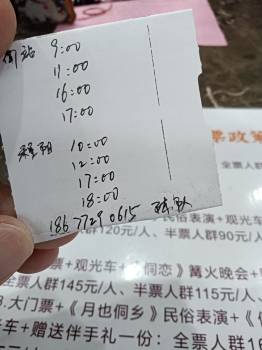 9:00
11:00
16:00
17:00
10:00
12:00
17:00
18:00
18677290615 车队
票政策
全票人群16
民俗表演+观光
群120元/人、半票人群90元/
票+观光车+《侗恋》篝火晚会+
票人群145元/人、半票人群115元/人、
大门票+《月也侗乡》民俗表演+《
光车+赠送伴手礼一份：全票人
全票人群168